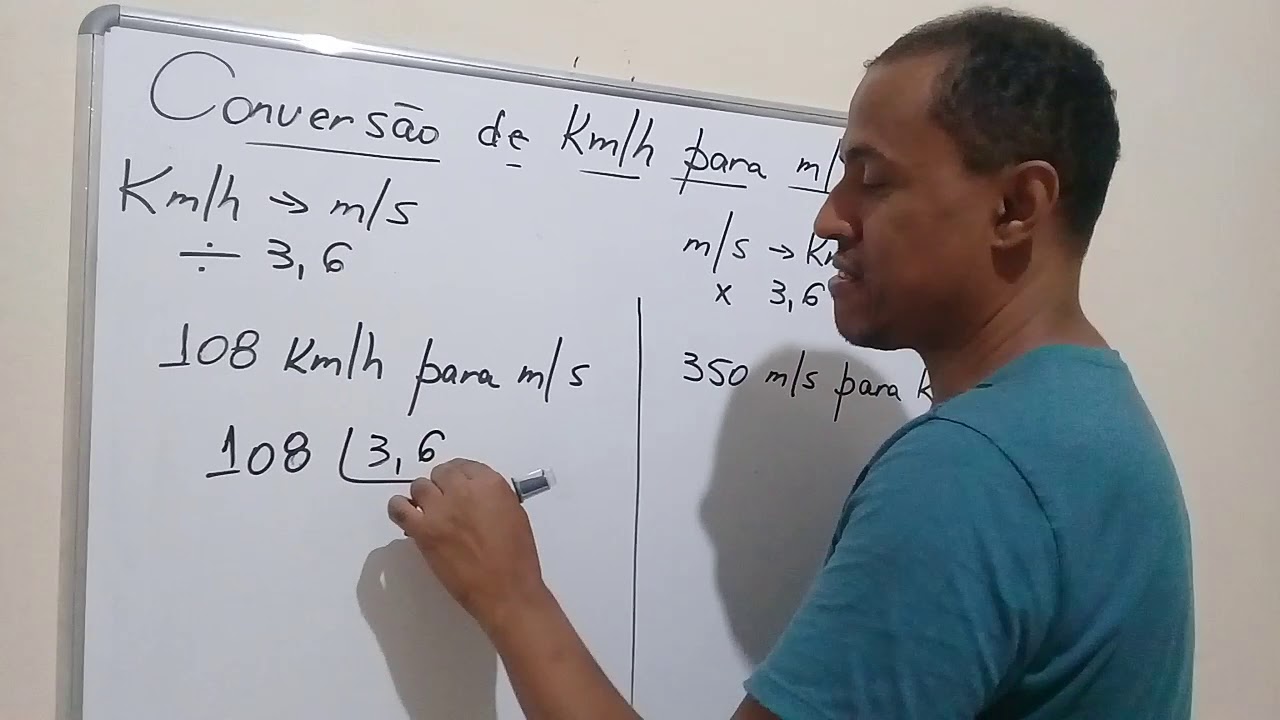 Conversão de Km/h para m/
Km/h → m/s
÷ 3,6
108 Km/h para m/s
108 3,6
m/s →
x 3,6
350 m/s para